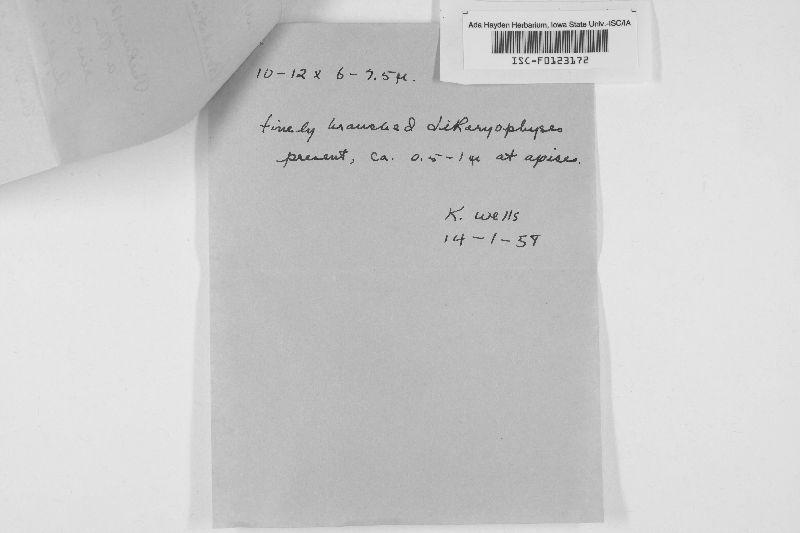 Ada Hayden Herbarium, Iowa State Univ.-ISC/IA
ISC-F0123172
10-12 x 6-7.5µ.
finely branched dikaryophyses
present, ca. 0.5-1µ at apices.
K. Wells
14-1-58